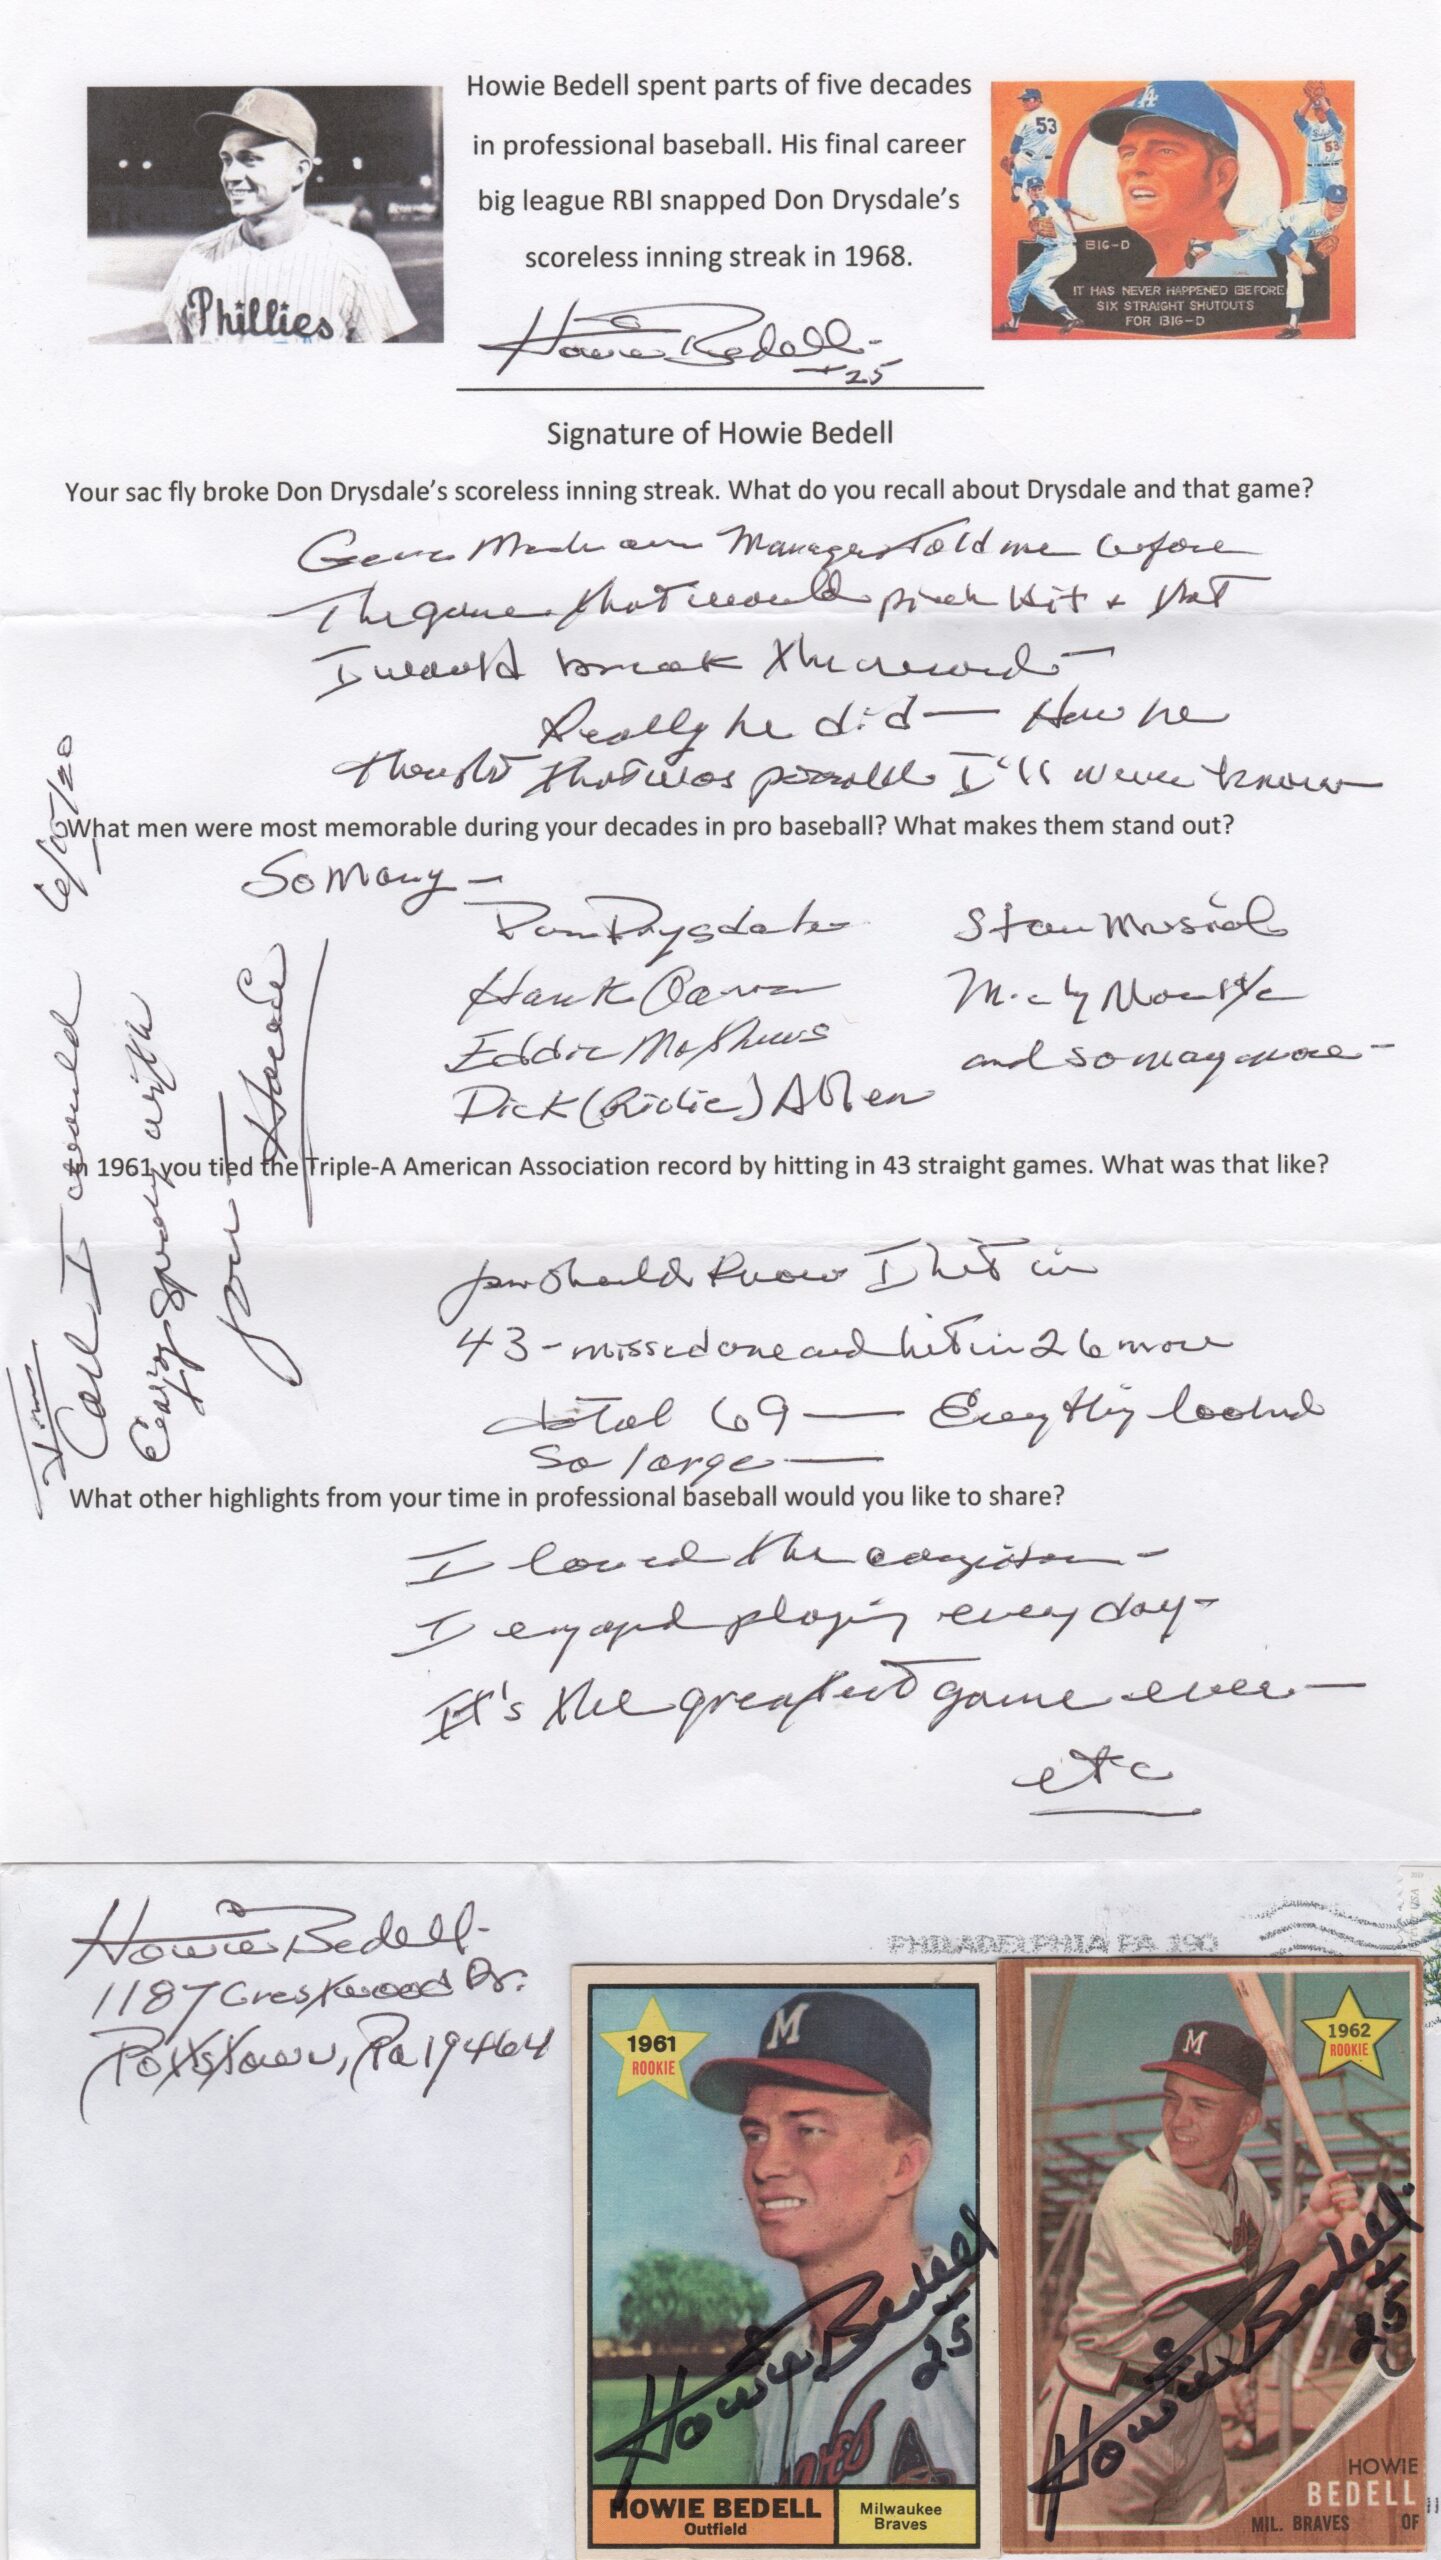 Howie Bedell spent parts of five decades
in professional baseball. His final career
big league RBI snapped Don Drysdale's
scoreless inning streak in 1968.
Phillies
53
53
BIG-D
IT HAS NEVER HAPPENED BEFORE
SIX STRAIGHT SHUTOUTS
FOR BIG-D
Howie Bedell-
25
Signature of Howie Bedell
Your sac fly broke Don Drysdale's scoreless inning streak. What do you recall about Drysdale and that game?
Gene Mauch our Manager told me before
The game that I would pinch hit + that
I would break the record
Really he did — How he
thought that was possible I'll never know
What men were most memorable during your decades in pro baseball? What makes them stand out?
So Many -
Don Drysdale
Hank Aaron
Eddie Mathews
Dick (Richie) Allen
Stan Musial
Micky Mantle
and so many more -
In 1961 you tied the Triple-A American Association record by hitting in 43 straight games. What was that like?
you should know I hit in
43 - missed one and hit in 26 more
total 69 — Everything looked
so large —
What other highlights from your time in professional baseball would you like to share?
I loved the competition -
I enjoyed playing every day -
It's the greatest game ever —
etc
6/05/20
Call I would
Enjoy Speaking with
you - Howie
Howie Bedell-
1187 Crestwood Dr.
Pottstown, Pa 19464
PHILADELPHIA PA 190
M
1961
ROOKIE
Howie Bedell
25
HOWIE BEDELL
Outfield
Milwaukee
Braves
M
1962
ROOKIE
Howie Bedell
25
HOWIE
BEDELL
MIL. BRAVES OF